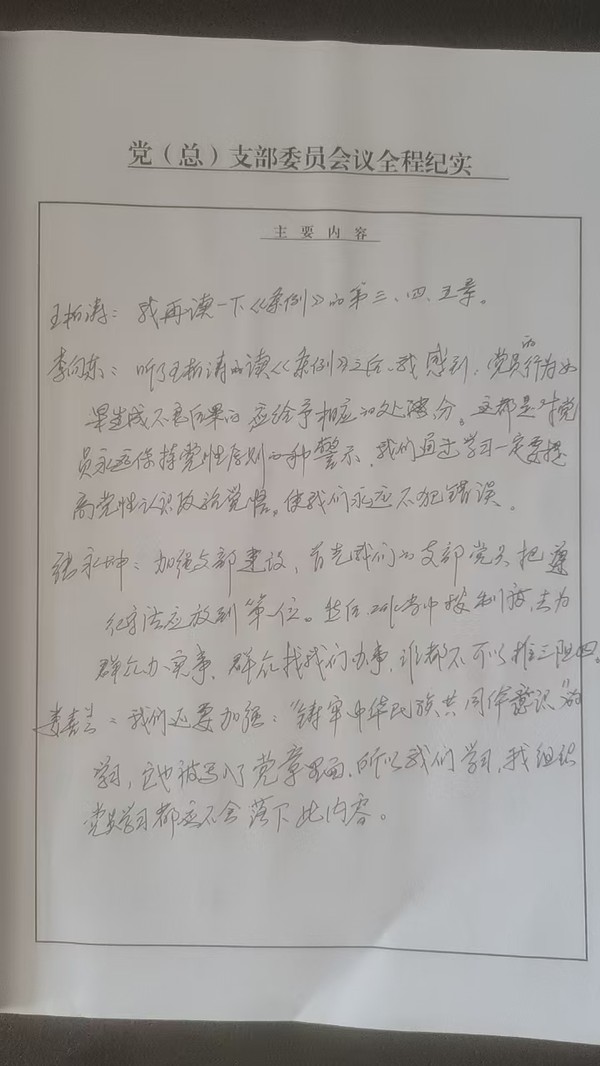 党（总）支部委员会议全程纪实
主要内容
王柏涛：我再读一下《条例》的第三、四、五章。
李向东：听了王柏涛的读《条例》之后，我感到：党员的行为如
果造成不良后果的应给予相应的处分。这都是对党
员永远保持党性原则的一种警示，我们通过学习一定要提
高党性认识政治觉悟，使我们永远不犯错误。
张永坤：加强支部建设，首先我们的支部党员把遵
纪守法应放到第一位。然后 按制度去为
群众办实事，群众找我们办事，谁都不可以推三阻四。
：我们还要加强："铸牢中华民族共同体意识"的
学习，它也被写入了党章里面，所以我们学习，我组织
党员学习都应不会落下此内容。